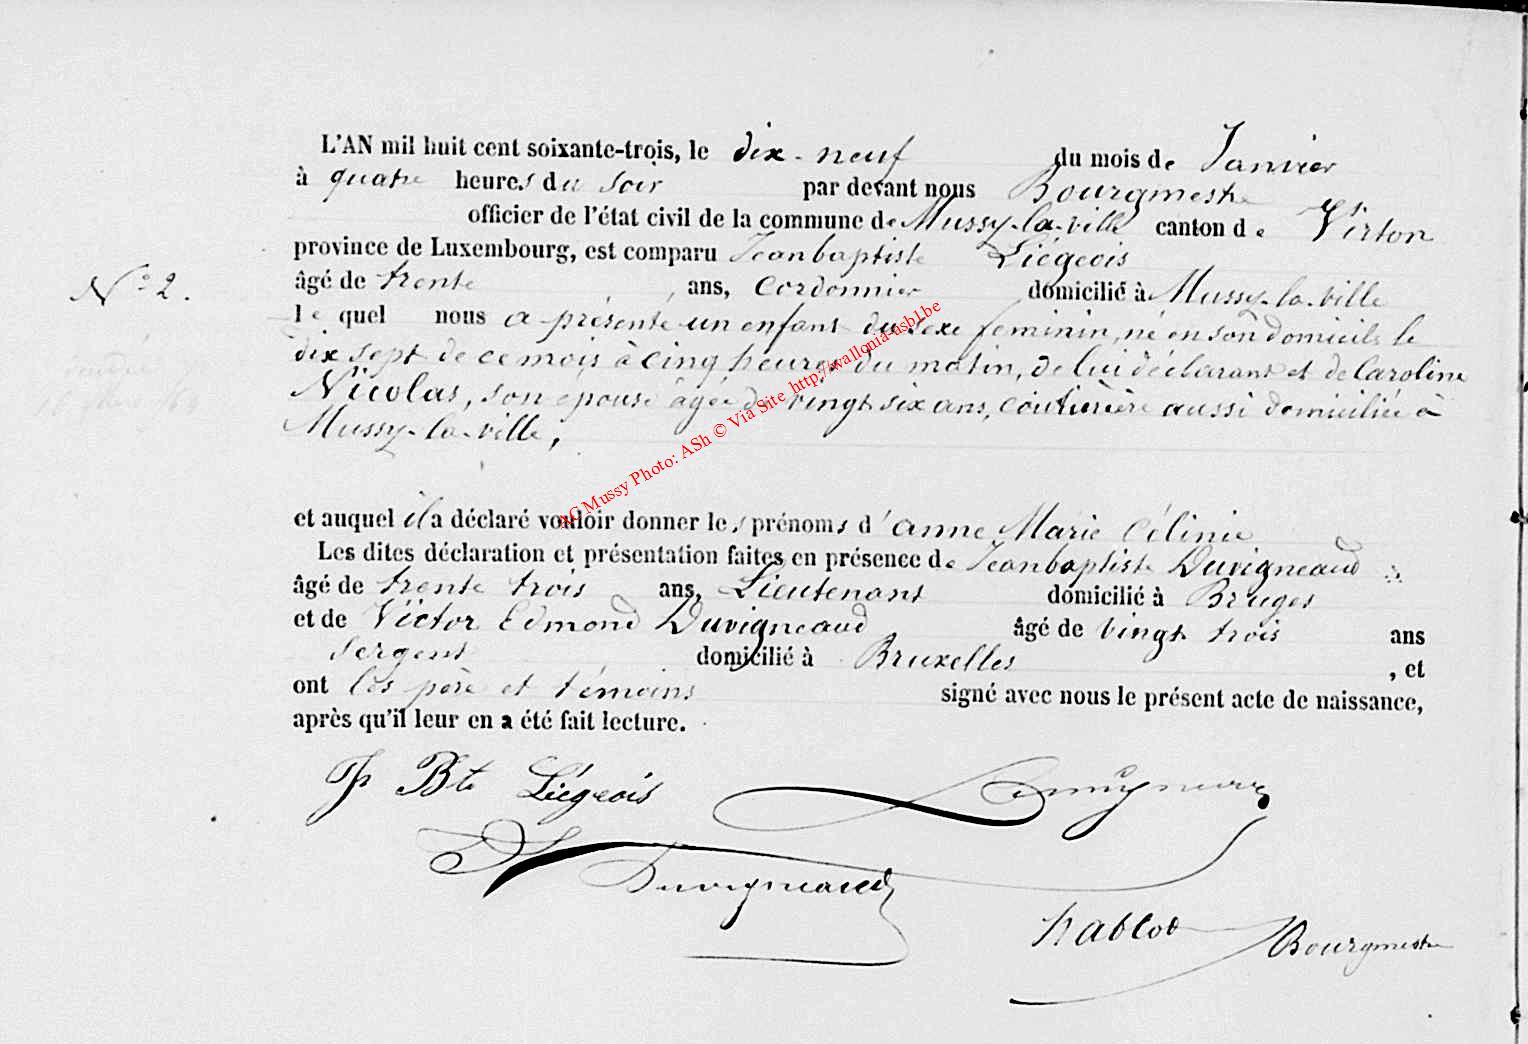 L'AN mil huit cent soixante-trois, le dix-neuf du mois de Janvier
à quatre heures du soir par devant nous Bourgmestre
officier de l'état civil de la commune de Mussy-la-ville canton de Virton
province de Luxembourg, est comparu Jean baptiste Liégeois
N° 2.
âgé de trente ans, Cordonnier domicilié à Mussy-la-ville
lequel nous a présenté un enfant du sexe féminin, né en son domicile le
dix sept de ce mois à cinq heures du matin, de lui déclarant et de Caroline
Nicolas, son épouse âgée de vingt six ans, couturière aussi domiciliée à
Mussy-la-ville,
et auquel il a déclaré vouloir donner les prénoms d'anne Marie Célinie
Les dites déclaration et présentation faites en présence de Jean baptiste Duvigneaud
âgé de trente trois ans, Lieutenant domicilié à Bruges
et de Victor Edmond Duvigneaud âgé de vingt trois ans
sergent domicilié à Bruxelles , et
ont les père et témoins signé avec nous le présent acte de naissance,
après qu'il leur en a été fait lecture.
JP Bte Liégeois
Duvigneaud
Hablot Bourgmestre
AC Mussy Photo: ASh © Via Site http://wallonia-asbl.be